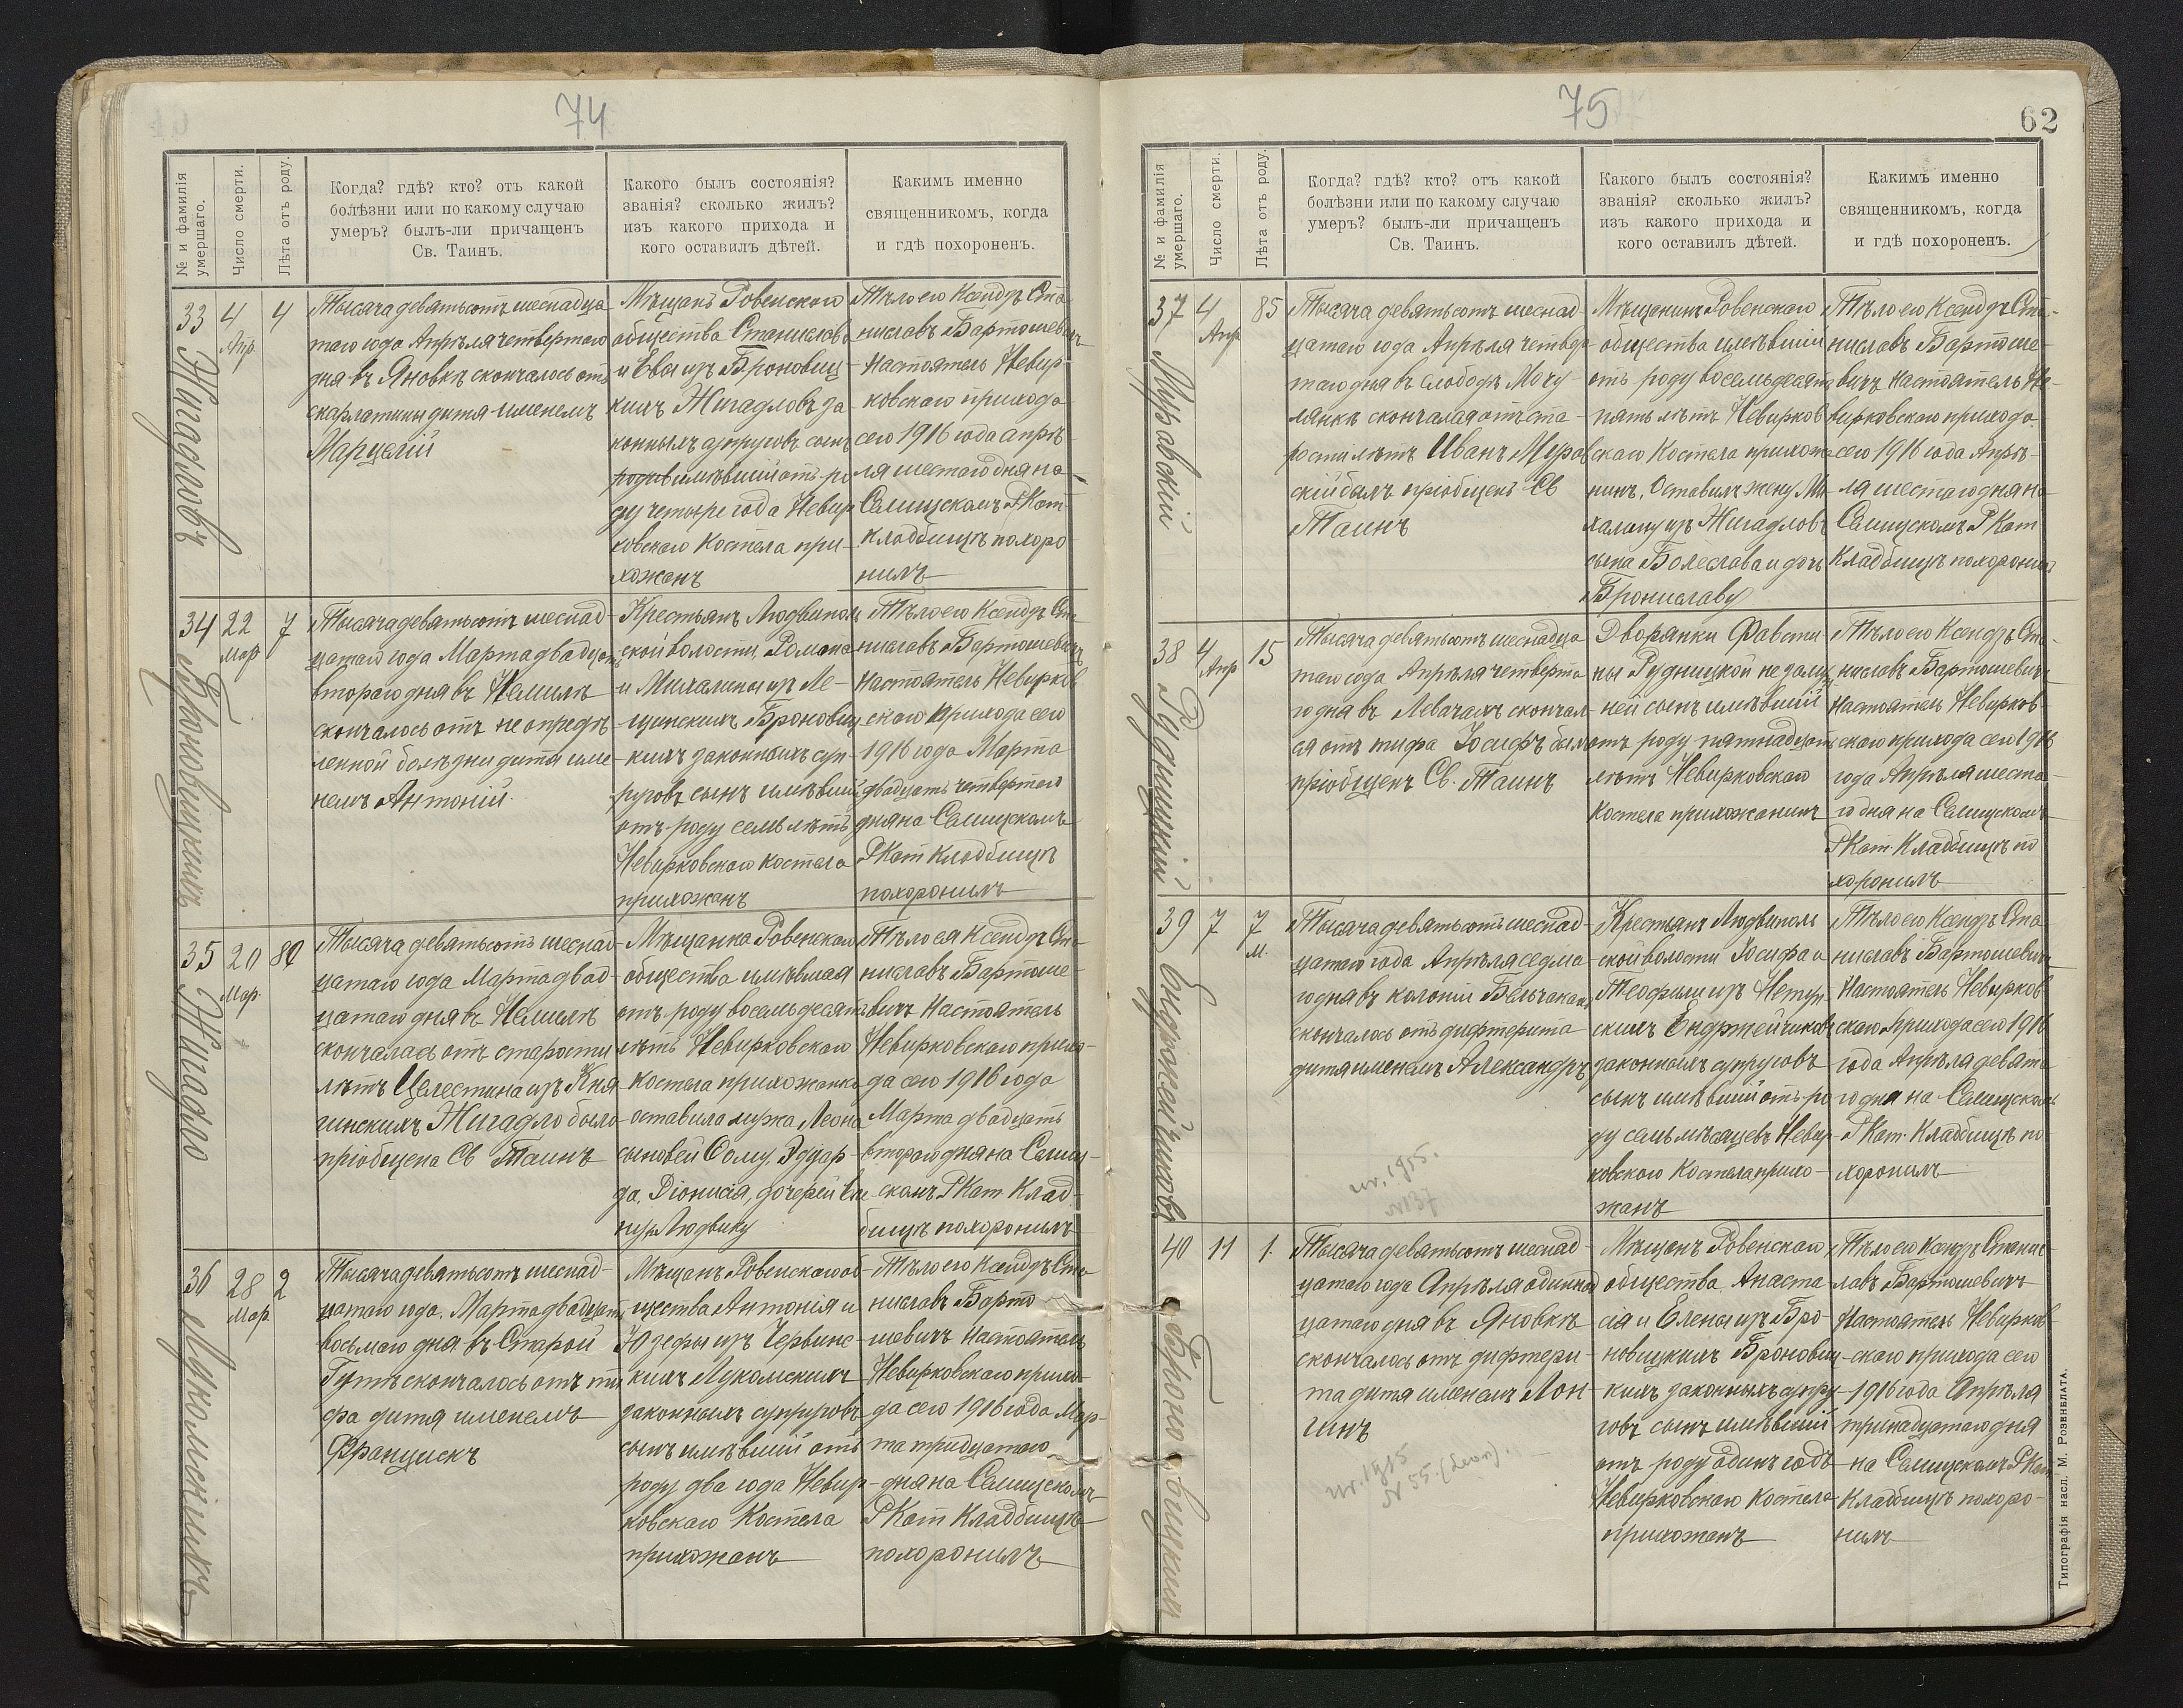 74
№ и фамилія умершаго.
Число смерти.
Лѣта отъ роду.
Когда? гдѣ? кто? отъ какой
болѣзни или по какому случаю
умеръ? былъ-ли причащенъ
Св. Таинъ.
Какого былъ состоянія?
званія? сколько жилъ?
изъ какого прихода и
кого оставилъ дѣтей.
Какимъ именно
священникомъ, когда
и гдѣ похороненъ.
33 Жигадловъ
4 Апр
4
Тысяча девятьсотъ шеснадца
таго года Апрѣля четвертаго
дня въ Яновкѣ скончалось отъ
скарлатины дитя именемъ
Марцелій
Мѣщанъ Ровенскаго
общества Станислава
и Евы изъ Броновиц
кихъ Жигадловъ за
конныхъ супруговъ сынъ
родив имѣвшій отъ ро
ду четыре года Невир
ковскаго Костела при-
хожанъ
Тѣло его Ксендзъ Ста
ниславъ Бартошевичъ
Настоятель Невир
ковскаго прихода
сего 1916 года Апрѣ
ля шестаго дня на
Селищскомъ РКат
кладбищѣ похоро
нилъ
34 Броновицкихъ
22 Мар
7
Тысяча девятьсотъ шеснад-
цатаго года Марта двадцать
втораго дня въ Немилѣ
скончалось отъ неопредѣ
ленной болѣзни дитя име
немъ Антоній.
Крестьянъ Людвиполь
ской волости, Романа
и Михалины изъ Ле-
щинскихъ Броновиц
кихъ законныхъ суп-
руговъ сынъ имѣвшій
отъ роду семь лѣтъ
Невирковскаго костела
прихожанъ
Тѣло его Ксендзъ Ста
ниславъ Бартошевичъ
Настоятель Невирков
скаго прихода сего
1916 года Марта
двадцать четвертаго
дня на Селищскомъ
РКат кладбищѣ
похоронилъ
35 Жигадло
20 Мар.
80
Тысяча девятьсотъ шеснад-
цатаго года Марта двад
цатаго дня въ Немилѣ
скончалась отъ старости
лѣтъ Целестина изъ Кня
гинскихъ Жигадло была
пріобщена Св Таинъ
Мѣщанка Ровенскаго
общества имѣвшая
отъ роду восемьдесятъ
лѣтъ Невирковскаго
костела прихожанка
оставила мужа Леона
сыновей Фому, Эдуар-
да, Діонисія, дочерей
Людвику
Тѣло ея Ксендзъ Ста-
ниславъ Бартоше-
вичъ Настоятель
Невирковскаго прихо-
да сего 1916 года
Марта двадцать
втораго дня на Селищ-
скомъ РКат Клад-
бищѣ похоронилъ
36 Лукомскихъ
28 Мар
2
Тысяча девятьсотъ шеснад-
цатаго года, Марта двадцать
восьмаго дня въ Старой
Гутѣ скончалось отъ ти
фа дитя именемъ
Францискъ
Мѣщанъ Ровенскаго об-
щества Антонія и
Юзефы изъ Червинс-
кихъ Лукомскихъ
законныхъ супруговъ
сынъ имѣвшій отъ
роду два года Невир
ковскаго Костела
прихожанъ
Тѣло его Ксендзъ Ста
ниславъ Барто
шевичъ Настоятель
Невирковскаго прихо-
да сего 1916 года Мар-
та тридцатаго
дня на Селищскомъ
РКат Кладбищѣ
похоронилъ
75
62
№ и фамилія умершаго.
Число смерти.
Лѣта отъ роду.
Когда? гдѣ? кто? отъ какой
болѣзни или по какому случаю
умеръ? былъ-ли причащенъ
Св. Таинъ.
Какого былъ состоянія?
званія? сколько жилъ?
изъ какого прихода и
кого оставилъ дѣтей.
Какимъ именно
священникомъ, когда
и гдѣ похороненъ.
37 Муравскій
4 Апр
85
Тысяча девятьсотъ шеснад
цатаго года Апрѣля четвер
таго дня въ слободѣ Мочу-
лянкѣ скончался отъ ста-
рости лѣтъ Иванъ Мурав
скій былъ пріобщенъ Св
Таинъ
Мѣщанинъ Ровенскаго
общества имѣвшій
отъ роду восемьдесятъ
пять лѣтъ Невирков
скаго Костела прихожа
нинъ, Оставилъ жену Ми-
халину изъ Жигадловъ
сына Болеслава и дочь
Брониславу
Тѣло его Ксендзъ Ста-
ниславъ Бартоше-
вичъ Настоятель Не-
вирковскаго прихода
сего 1916 года Апрѣ-
ля шестаго дня на
Селищскомъ РКат
Кладбищѣ похоронилъ
38 Рудницкій
4 Апр
15
Тысяча девятьсотъ шеснадца
таго года Апрѣля четверта
го дня въ Левачахъ скончал
ся отъ тифа Іосифъ былъ
пріобщенъ Св. Таинъ
Дворянки Фавсти-
ны Рудницкой незамуж
ней сынъ имѣвшій
отъ роду пятнадцать
лѣтъ Невирковскаго
Костела прихожанинъ
Тѣло его Ксендзъ Ста-
ниславъ Бартошевичъ
Настоятель Невирков
скаго прихода сего 1916
года Апрѣля шеста-
го дня на Селищскомъ
РКат. Кладбищѣ по
хоронилъ
39 Енджейчиковъ
7
7 м.
Тысяча девятьсотъ шеснад-
цатаго года Апрѣля седма
го дня въ колоніи Бѣльчакахъ
скончалось отъ дифтерита
дитя именемъ Александръ
Крестьянъ Людвиполь
ской волости Іосифа и
Теофили изъ
скихъ Енджейчиковъ
законныхъ супруговъ
сынъ имѣвшій отъ ро
ду семь мѣсяцевъ Невир-
ковскаго Костела прихо-
жанъ
Тѣло его Ксендзъ Ста
ниславъ Бартошевичъ
Настоятель Невирков
скаго Прихода сего 1916
года Апрѣля девята
го дня на Селищскомъ
РКат. Кладбищѣ по
хоронилъ
40 Броновицкихъ
11
1.
Тысяча девятьсотъ шеснад-
цатаго года Апрѣля одиннад
цатаго дня въ Яновкѣ
скончалось отъ дифтери-
та дитя именемъ Лон
гинъ
Мѣщанъ Ровенскаго
общества Анаста
сія и Елены изъ Бро-
новицкихъ Броновиц-
кихъ законныхъ супру-
говъ сынъ имѣвшій
отъ роду одинъ годъ
Невирковскаго Костела
прихожанъ
Тѣло его Ксендзъ Станис-
лавъ Бартошевичъ
Настоятель Невирков-
скаго прихода сего
1916 года Апрѣля
тринадцатаго дня
на Селищскомъ РКат
Кладбищѣ похоро-
нилъ
Типографія насл. М. Розенблата.